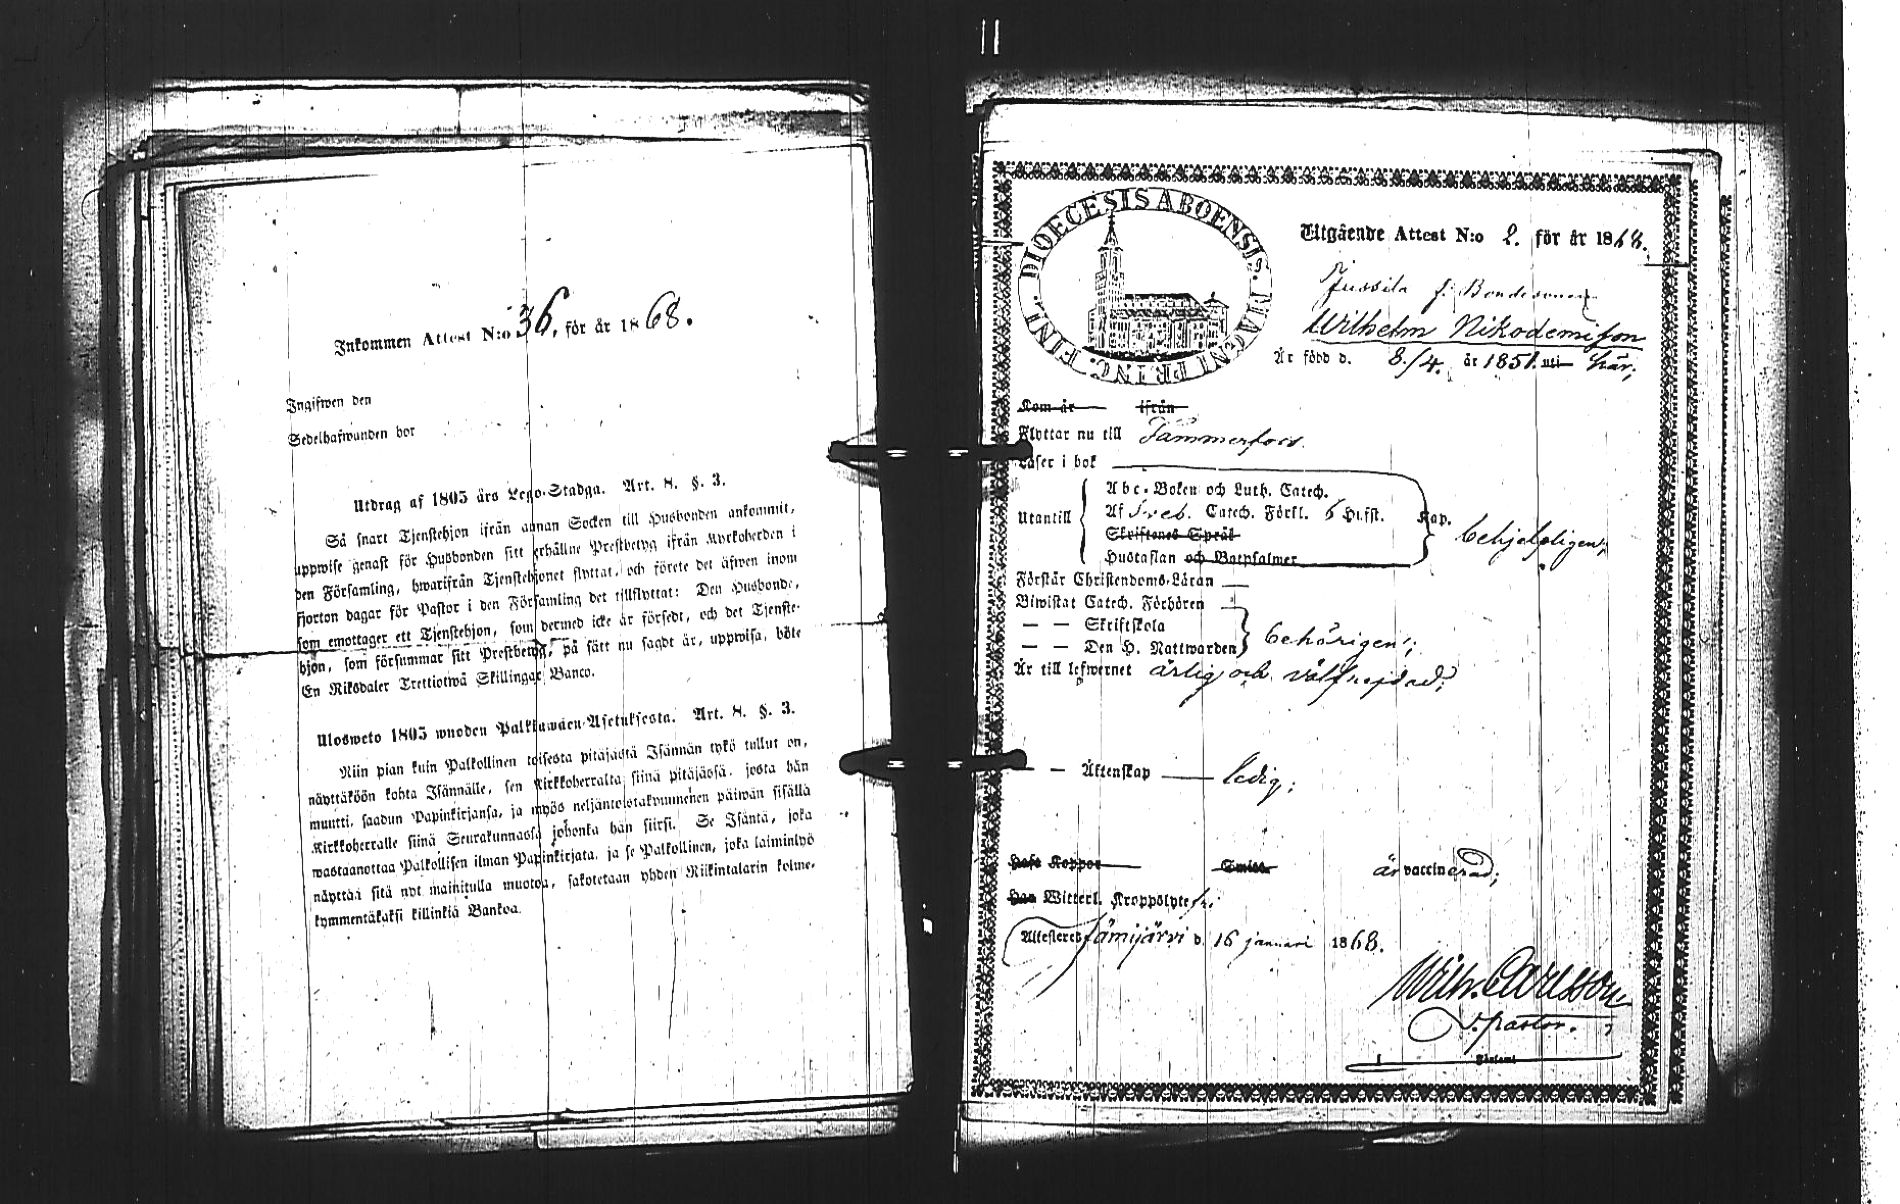 Inkommen Attest N:o 36. för år 1868.
Ingifwen den
Sedelhafwanden bor
Utdrag af 1805 års Lego-Stadga. Art. 8. §. 3.
Så snart Tjenstehjon ifrån annan Socken till Husbonden ankommit,
uppwise genast för Husbonden sitt erhållne Prestbetyg ifrån Kyrkoherden i
den Församling, hwarifrån Tjenstehjonet flyttat, och förete det äfwen inom
fjorton dagar för Pastor i den Församling det tillflyttat: Den Husbonde,
som emottager ett Tjenstehjon, som dermed icke är försedt, och det Tjenste-
hjon, som försummar sitt Prestbetyg, på sätt nu sagdt är, uppwisa, böte
En Riksdaler Trettiotwå Skillingar Banco.
Ulosweto 1805 wuoden Palkkawäen-Asetuksesta. Art. 8. §. 3.
Niin pian kuin Palkollinen toisesta pitäjästä Isännän tykö tullut on,
näyttäköön kohta Isännälle, sen Kirkkoherralta siinä pitäjässä, josta hän
muutti, saadun Papinkirjansa, ja myös neljäntoistakymmenen päiwän sisällä
Kirkkoherralle siinä Seurakunnassa johonka hän siirsi. Se Isäntä, joka
wastaanottaa Palkollisen ilman Papinkirjata, ja se Palkollinen, joka laiminlyö
näyttää sitä nyt mainitulla muotoa, sakotetaan yhden Riikintalarin kolme-
kymmentäkaksi killinkiä Bankoa.
DIOECESIS ABOENSIS. MAGNI PRINC. FINL.
Utgående Attest N:o 2. för år 1868.
Jussila f. Bondesonen
Wilhelm Nikodemisson
Är född d. 8./4. år 1851. uti här;
Kom år ifrån
Flyttar nu till Tammerfors.
Läser i bok
Utantill
Abc-Boken och Luth. Catech.
Af Sveb. Catech. Förkl. 6 Hufst. Kap.
Skriftenes Språk
Hustaflan och Botpsalmer
behjelpligen;
Förstår Christendoms-Läran
Biwistat Catech. Förhören
— — Skriftskola
— — Den H. Nattwarden
behörigen;
Är till lefwernet ärlig och välfrejdad;
— — Äktenskap ledig;
Haft Koppor Smitt är vaccinerad;
Har Witterl. Kroppslyte
Attesteras Jämijärvi d. 16 januari 1868.
Wilh. Carlsson
V. pastor.